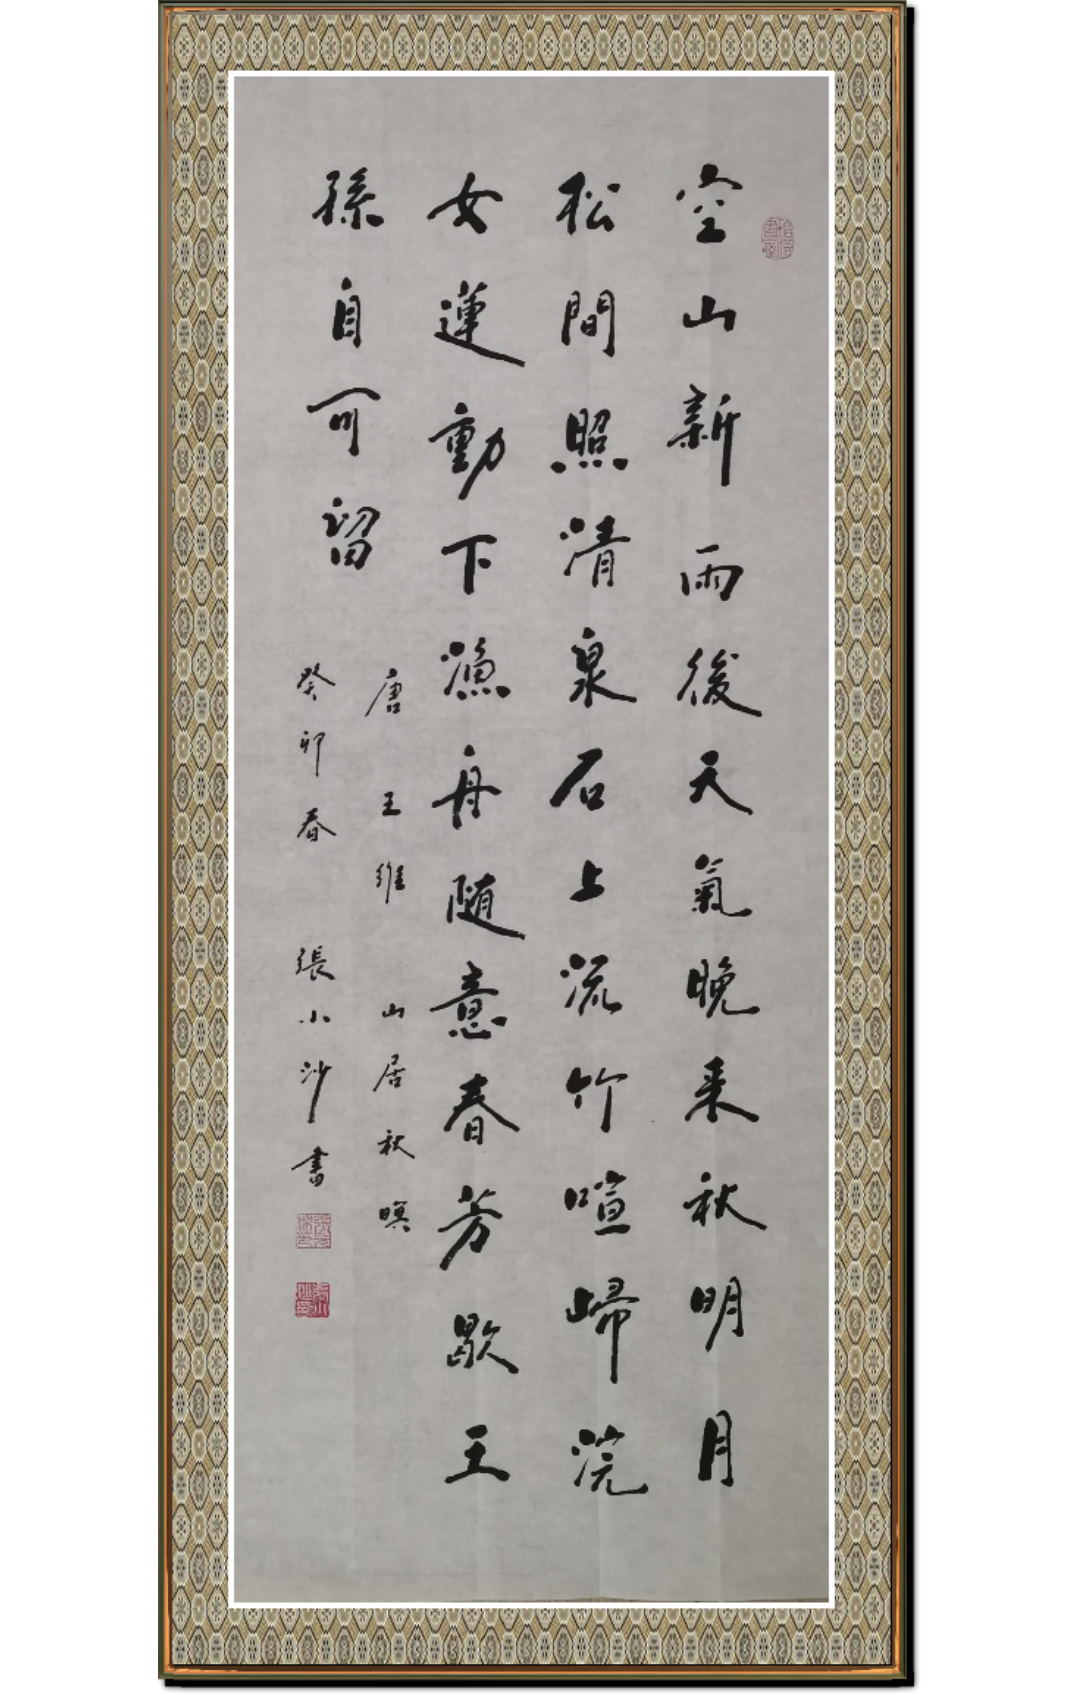 空山新雨後天氣晚来秋明月
松間照清泉石上流竹喧歸浣
女蓮動下漁舟随意春芳歇王
孫自可留
唐 王維 山居秋暝
癸卯春 張小沙書